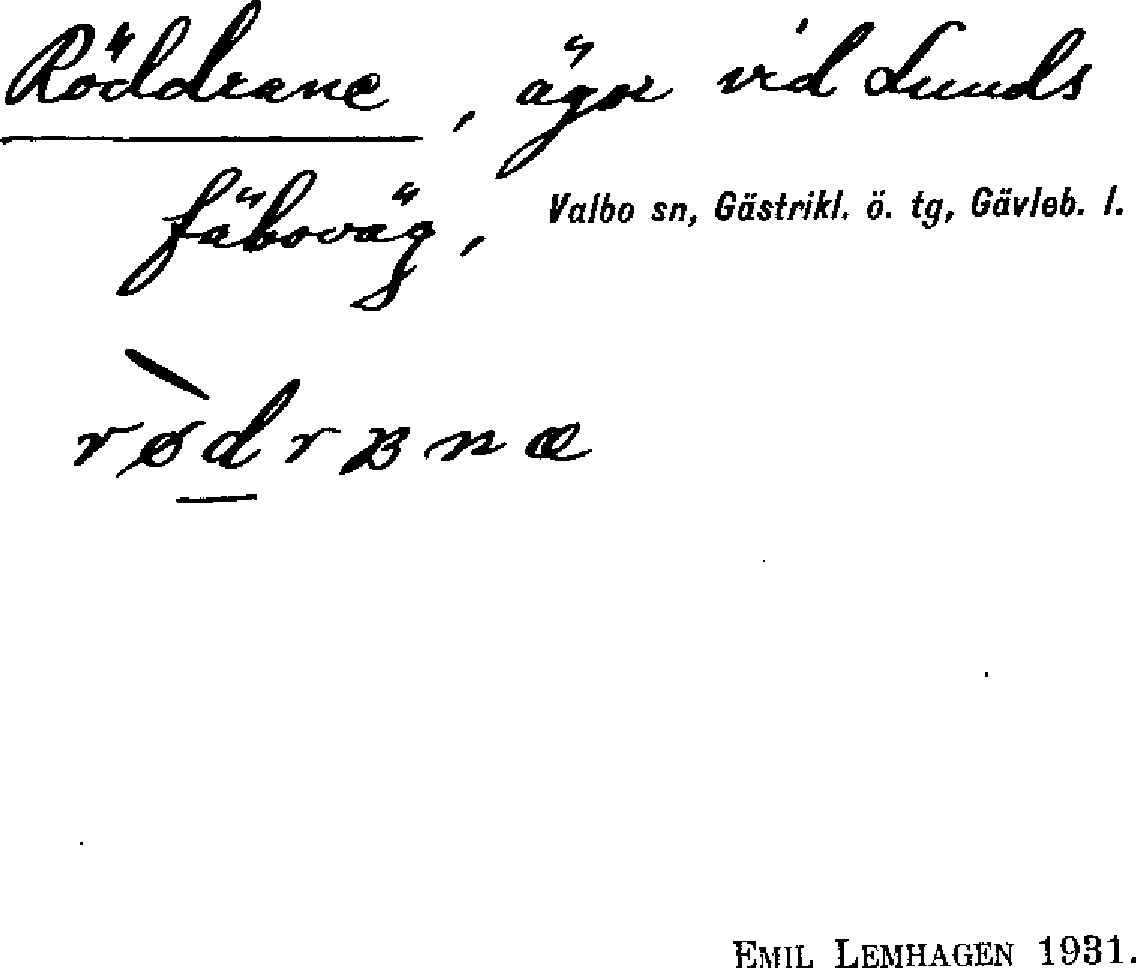 Röddrane, ägor vid Lunds
fäboväg,
Valbo sn, Gästrikl. ö. tg, Gävleb. l.
rø̀drʙnæ
EMIL LEMHAGEN 1931.